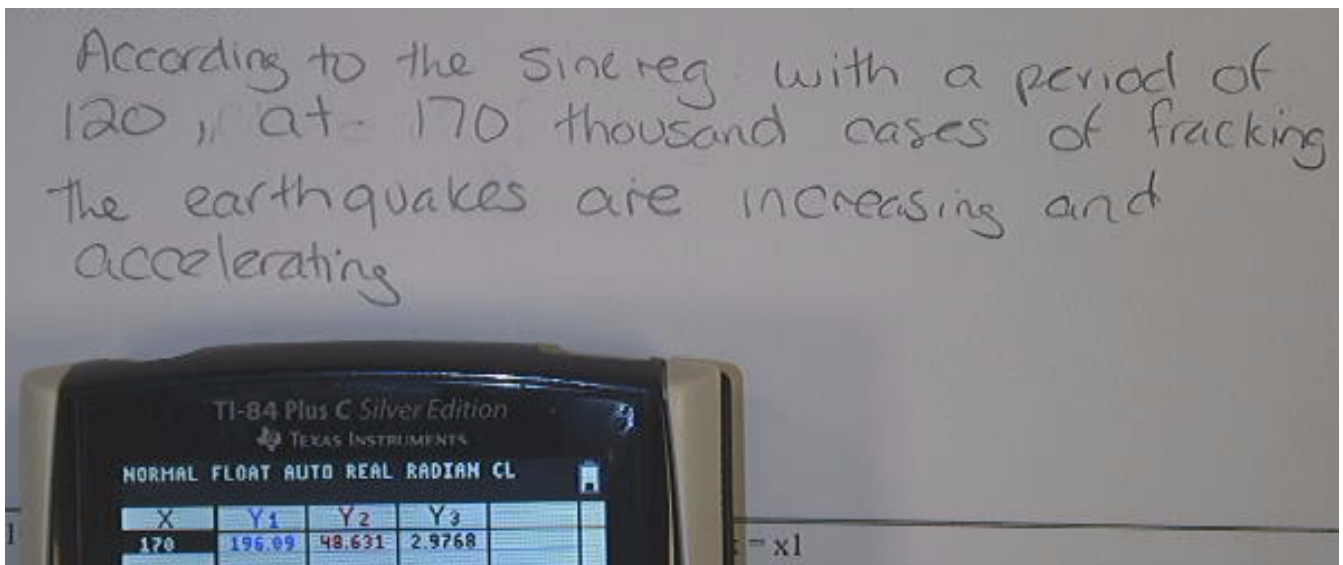 According to the Sine reg with a period of
120, at 170 thousand cases of fracking
the earthquakes are increasing and
accelerating
TI-84 Plus C Silver Edition
TEXAS INSTRUMENTS
NORMAL FLOAT AUTO REAL RADIAN CL
X Y1 Y2 Y3
170 196.09 48.631 2.9768
= x1